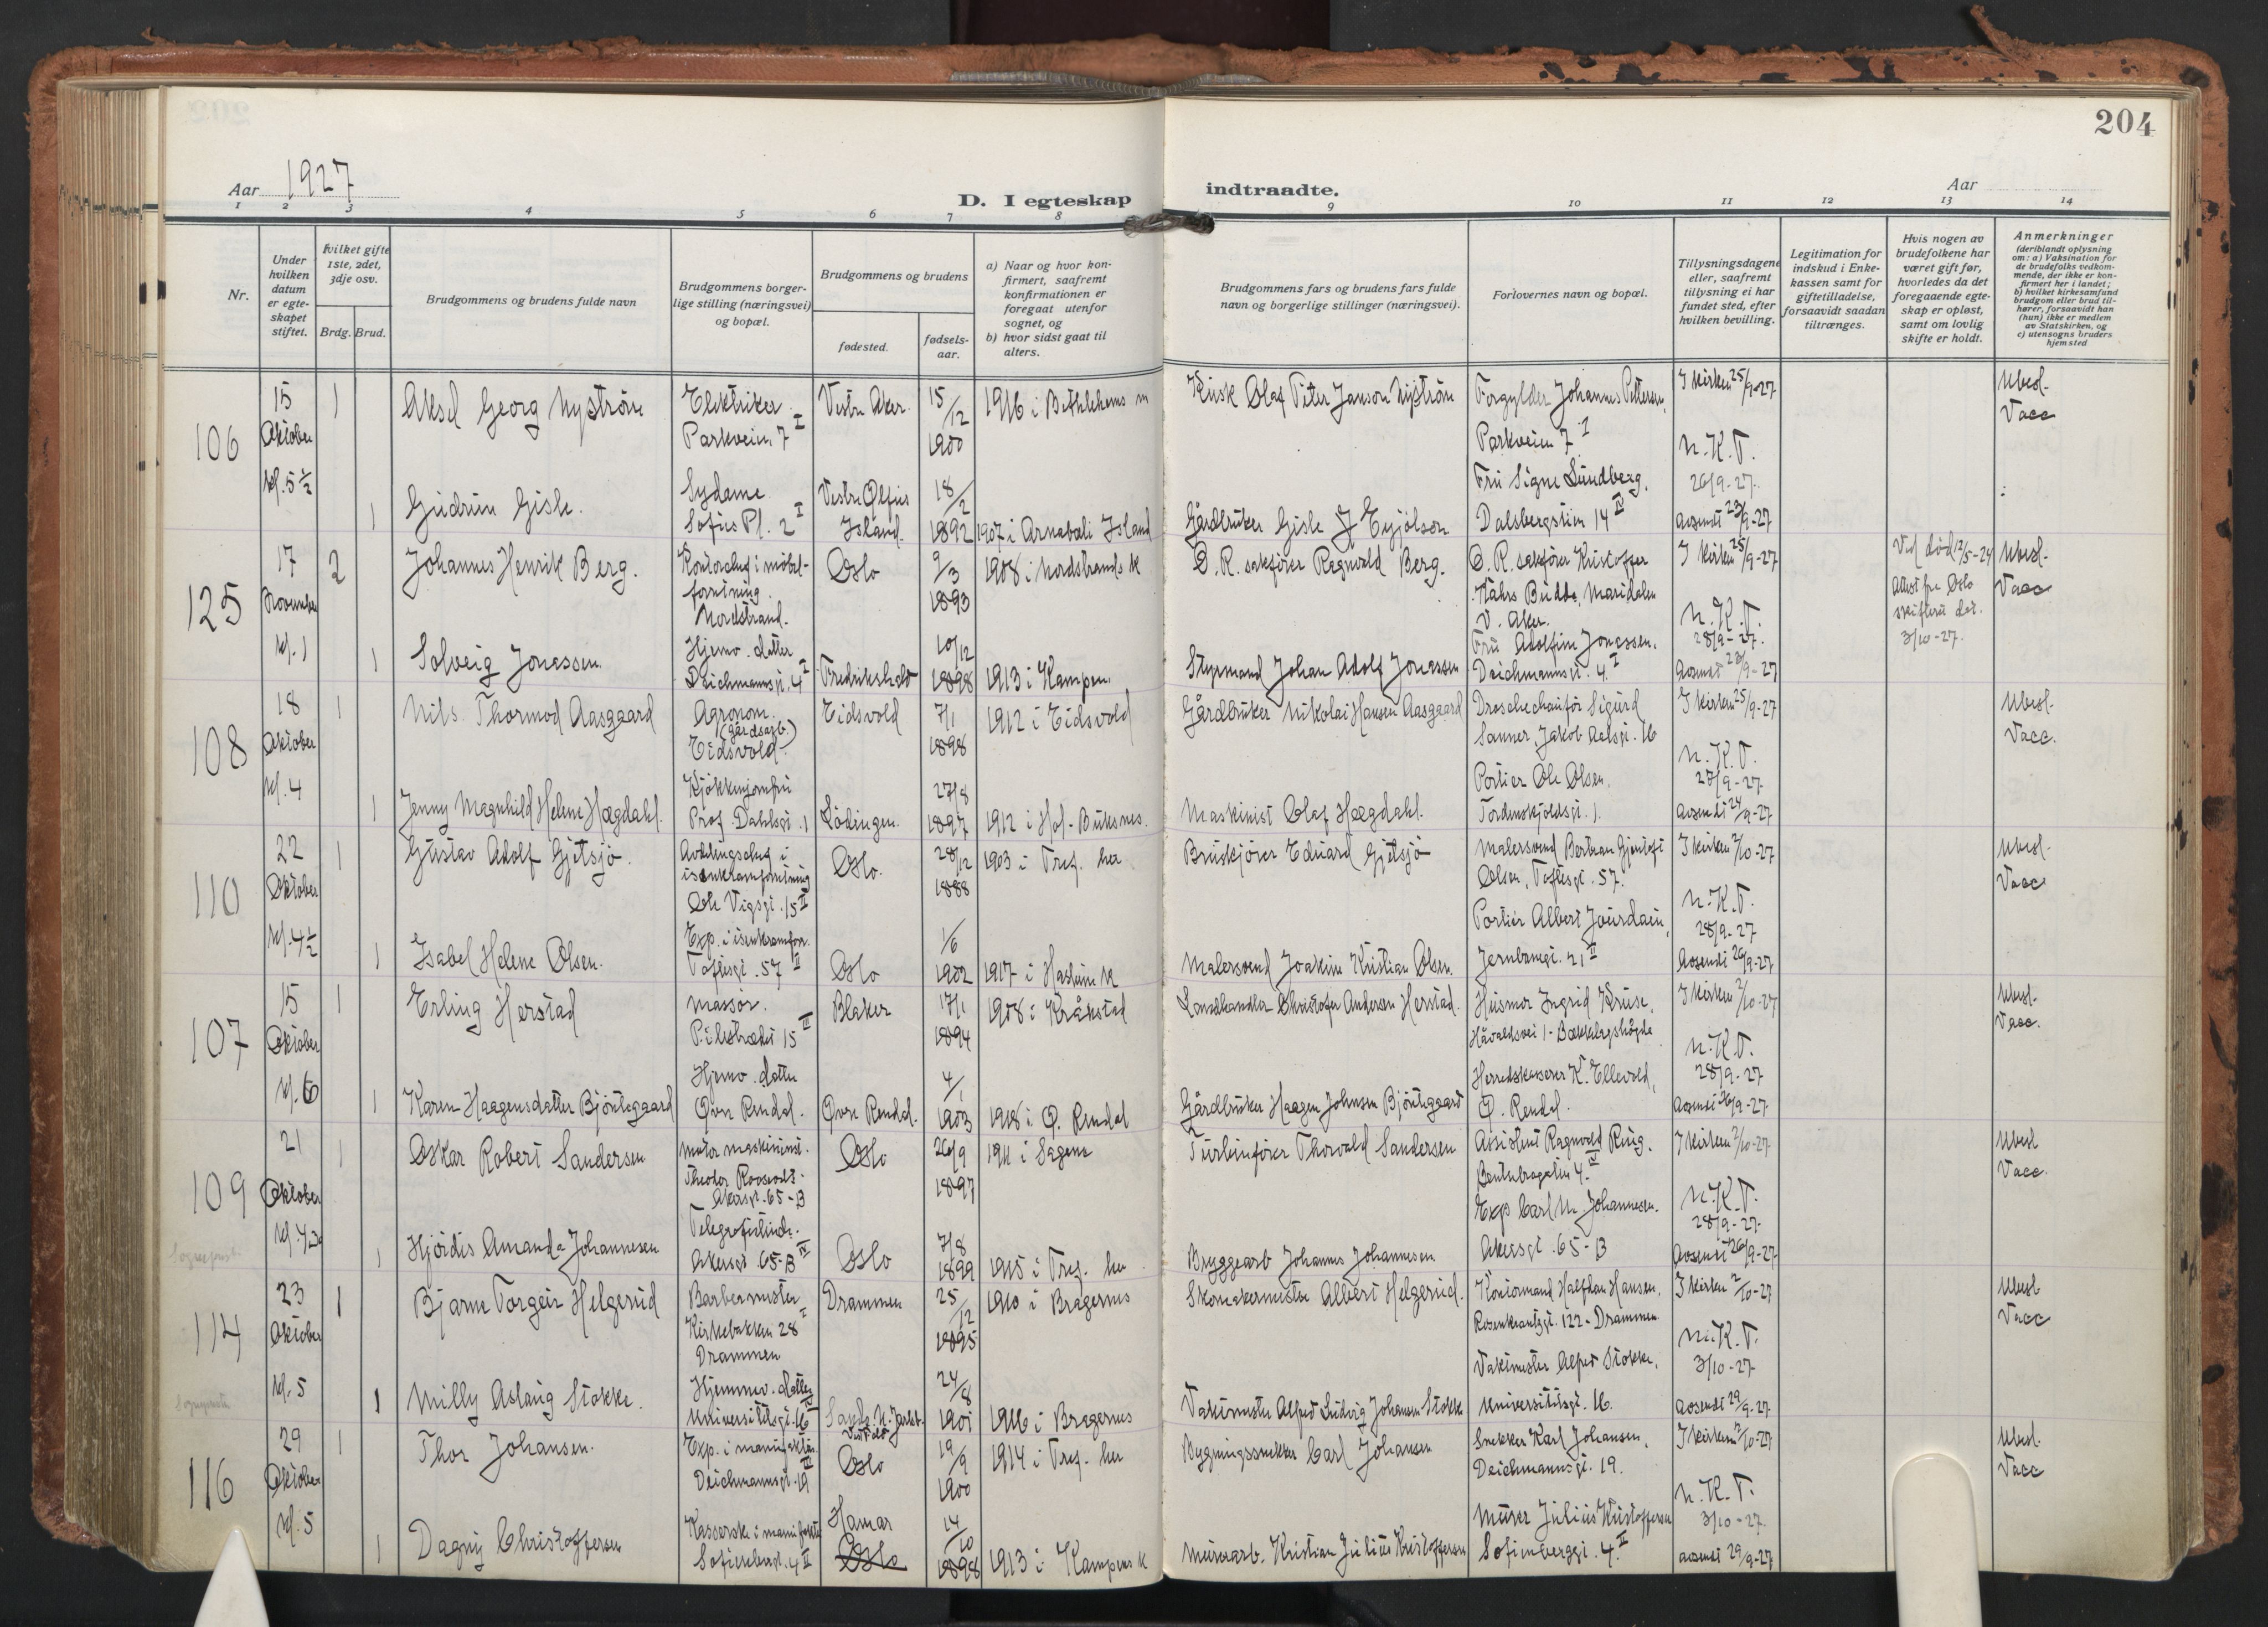 204
Aar 1927
D. I egteskap
indtraadte.
Aar
1 2 3 4 5 6 7 8 9 10 11 12 13 14
Nr.
Under hvilken datum er egteskapet stiftet.
hvilket gifte 1ste, 2det, 3dje osv.
Brdg. Brud.
Brudgommens og brudens fulde navn
Brudgommens borgerlige stilling (næringsvei) og bopæl.
Brudgommens og brudens
fødested.
fødselsaar.
a) Naar og hvor konfirmert, saafremt konfirmationen er foregaat utenfor sognet, og
b) hvor sidst gaat til alters.
Brudgommens fars og brudens fars fulde navn og borgerlige stillinger (næringsvei).
Forlovernes navn og bopæl.
Tillysningsdagene eller, saafremt tillysning ei har fundet sted, efter hvilken bevilling.
Legitimation for indskud i Enkekassen samt for giftetilladelse, forsaavidt saadan tiltrænges.
Hvis nogen av brudefolkene har været gift før, hvorledes da det foregaaende egteskap er opløst, samt om lovlig skifte er holdt.
Anmerkninger
(deriblandt oplysning om: a) Vaksination for de brudefolks vedkommende, der ikke er konfirmert her i landet; b) hvilket kirkesamfund brudgom eller brud tilhører, forsaavidt han (hun) ikke er medlem av Statskirken, og c) utensogns bruders hjemsted
106
15 Oktober kl. 5½
1
Aksel Georg Nyström
Elektriker Parkveien 7 I
Vestre Aker
15/12 1900
1916 i Bethlehems m
Kusk Olaf Peter Janson Nyström
Forgylder Johannes Pettersen, Parkveien 7 I
I kirken 25/9-27
Ubesl. Vacc
1
Gudrun Gisle.
Sydame Sofies Pl. 2 I
Vestre Ølfus Island.
18/2 1892
1907 i Arnabæli Island
Gårdbruker Gisle J Eyjolson
Fru Signe Lundberg. Dalsbergstien 14 IV
N.K.T. 26/9-27. Avsendt 23/9-27
125
17 November kl. 1
2
Johannes Henrik Berg.
Kontorchef i möbelforretning. Nordstrand.
Oslo
9/3 1893
1908 i Nordstrands k
O. R. sakfører Ragnvald Berg.
O. R. sakfører Kristoffer Nahrs Budde, Maridalen V. Aker.
I kirken 25/9-27
Ved död 12/5-24 Attest fra Oslo skifterett dat. 3/10-27.
Ubesl. Vacc
1
Solveig Jonassen.
Hjemv. datter Deichmannsgt. 4 I
Fredrikshald
10/12 1898
1913 i Kampen.
Styrmand Johan Adolf Jonassen
Fru Adolfine Jonassen, Deichmannsgt. 4 I
N.K.T. 28/9-27. Avsendt 23/9-27
108
18 Oktober kl. 4
1
Nils Thormod Aasgaard
Agronom. (gårdsarb.) Eidsvold
Eidsvold
7/1 1898
1912 i Eidsvold
Gårdbruker Nikolai Hansen Aasgaard
Droschechauför Sigurd Sanner, Jakob Aalsgt. 16
I kirken 25/9-27
Ubesl. Vacc.
1
Jenny Magnhild Helene Hægdahl.
Kjökkenjomfru Prof. Dahlsgt. 1
Lödingen.
27/8 1897
1912 i Hol-Buksnes.
Maskinist Olaf Hægdahl.
Portier Ole Olsen. Tordenskjoldsgt. 1.
N.K.T. 27/9-27. Avsendt 24/9-27
110
22 Oktober kl. 4½
1
Gustav Adolf Gjetsjö.
Avdelingschef i isenkramforretning Ole Vigsgt. 15 II
Oslo.
28/12 1888
1903 i Tref. her
Bruskjörer Edvard Gjetsjö
Malersvend Bertran Olsen, Toftesgt. 57.
I kirken 2/10-27
Ubesl. Vacc
1
Isabel Helene Olsen.
Exp. i isenkramforr. Toftesgt. 57 II
Oslo
1/6 1902
1917 i Haslum k
Malersvend Joakim Kristian Olsen.
Portier Albert Jourdain, Jernbanegt. 21 II
N.K.T. 28/9-27 Avsendt 26/9-27
107
15 Oktober kl. 6
1
Erling Herstad
Massör. Pilestrædet 15 III
Blaker
17/1 1894
1908 i Kråkstad
Landhandler Christofer Andersen Herstad.
Husmor Ingrid Kruse, Håvaldsvei 1 - Bækkelagshögda
I kirken 2/10-27
Ubesl. Vacc.
1
Karen Haagensdatter Björtegaard
Hjemv. datter Øvre Rendal.
Øvre Rendal.
4/1 1903
1918 i Ø. Rendal
Gårdbruker Haagen Johnsen Björtegaard
Herredskasserer K. Ellevold, Ø. Rendal.
N.K.T. 28/9-27 Avsendt 26/9-27
109
21 Oktober
1
Oskar Robert Sandersen
Motor maskinist. Theodor Roosevelt. Akersgt. 65-B
Oslo
26/9 1897
1911 i Sagene
Turbinförer Thorvald Sandersen
Assistent Ragnvald Ring. Bentsebrogaten 4 IV
I kirken 2/10-27
Ubesl Vacc.
1
Hjördis Amanda Johannesen
Telegrafistinde. Akersgt. 65-B IV
Oslo
7/8 1899
1915 i Tref. her
Bryggearb Johannes Johannesen
Exp Carl M. Johannesen. Akersgt. 65-B
N.K.T. 28/9-27. Avsendt 26/9-27
114
23 Oktober kl. 5
1
Bjarne Torgeir Helgerud
Barbermester Kirkebakken 28 Drammen
Drammen
25/12 1895
1910 i Bragernes
Skomakermester Albert Helgerud.
Kontormand Halfdan Hansen, Rosenkrantzgt. 122 - Drammen.
I kirken 2/10-27
Ubesl Vacc
1
Milly Aslaug Stokke.
Hjemmev. datter Universitetsgt. 16
24/8 1901
1916 i Bragernes
Vaktmester Alfred Ludvig Johansen Stokke
Vaktmester Alfred Stokke, Universitetsgt. 16.
N.K.T. 3/10-27 Avsendt 29/9-27
116
29 Oktober kl. 5
1
Thor Johansen.
Exp. i manufaktur. Deichmannsgt. 19 IV
Oslo
19/9 1900
1914 i Tref. her
Bygningssnekker Carl Johansen
Snekker Karl Johansen, Deichmannsgt. 19.
I kirken 2/10-27
Ubesl. Vacc
1
Dagny Christoffersen
Kasserske i manufaktur Sofienberggt. 4 II
Hamar Oslo
14/10 1898
1913 i Kampens k
Murerarb. Kristian Julius Kristoffersen
Murer Julius Kristoffersen Sofienberggt. 4 II
N.K.T. 3/10-27. avsendt 29/9-27